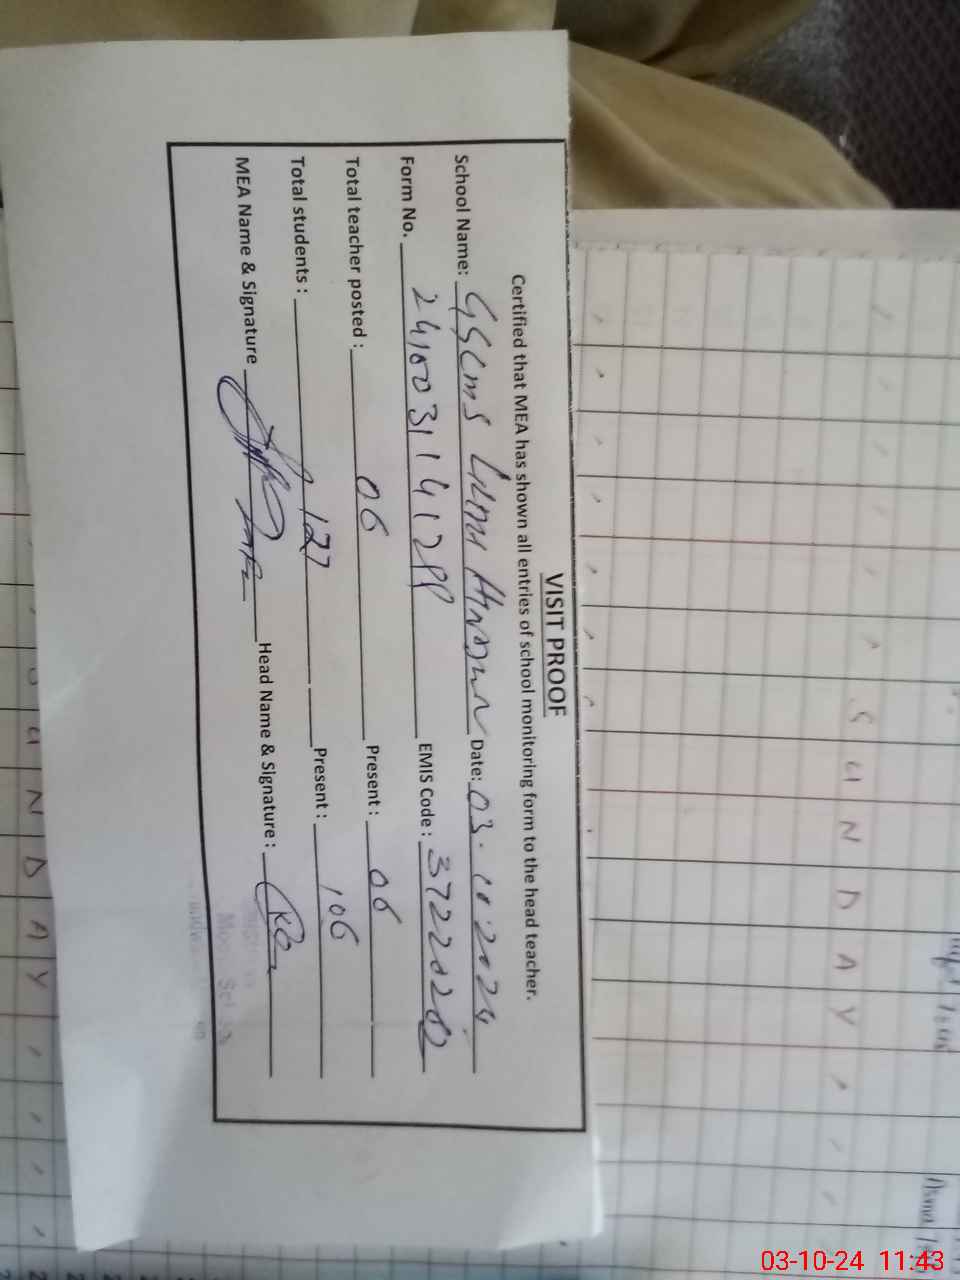 VISIT PROOF
Certified that MEA has shown all entries of school monitoring form to the head teacher.
School Name: GGCMS Date: 03.10.2024
Form No. 241003114128 EMIS Code: 37220202
Total teacher posted: 06 Present: 06
Total students: 127 Present: 106
MEA Name & Signature Head Name & Signature:
SUNDAY
SUNDAY
03-10-24 11:43